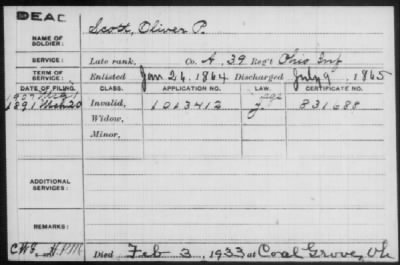 DEAD
NAME OF SOLDIER: Scott, Oliver P.
SERVICE: Late rank, Co. A, 39 Reg't Ohio Inf
TERM OF SERVICE: Enlisted Jan. 26, 1864 Discharged July 9, 1865
DATE OF FILING. CLASS. APPLICATION NO. LAW. CERTIFICATE NO.
1907
1891 Mch 20 Invalid, 1013412 J. 831688
Widow,
Minor,
ADDITIONAL SERVICES:
REMARKS:
Died Feb 3, 1933 at Coal Grove, Oh